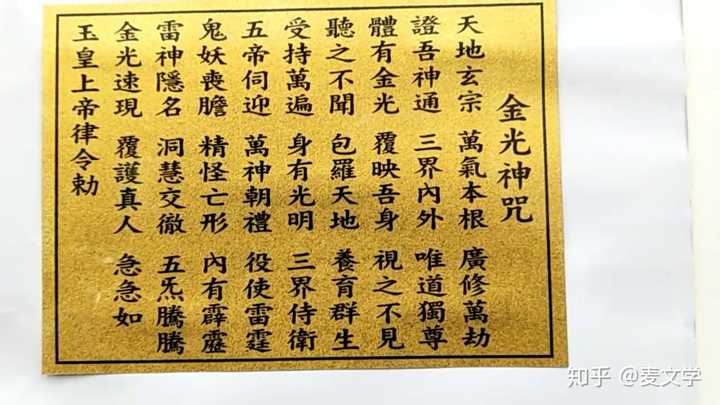 金光神咒
天地玄宗 萬氣本根 廣修萬劫
證吾神通 三界內外 唯道獨尊
體有金光 覆映吾身 視之不見
聽之不聞 包羅天地 養育群生
受持萬遍 身有光明 三界侍衛
五帝伺迎 萬神朝禮 役使雷霆
鬼妖喪膽 精怪亡形 內有霹靂
雷神隱名 洞慧交徹 五炁騰騰
金光速現 覆護真人 急急如
玉皇上帝律令勅
知乎 @麦文学